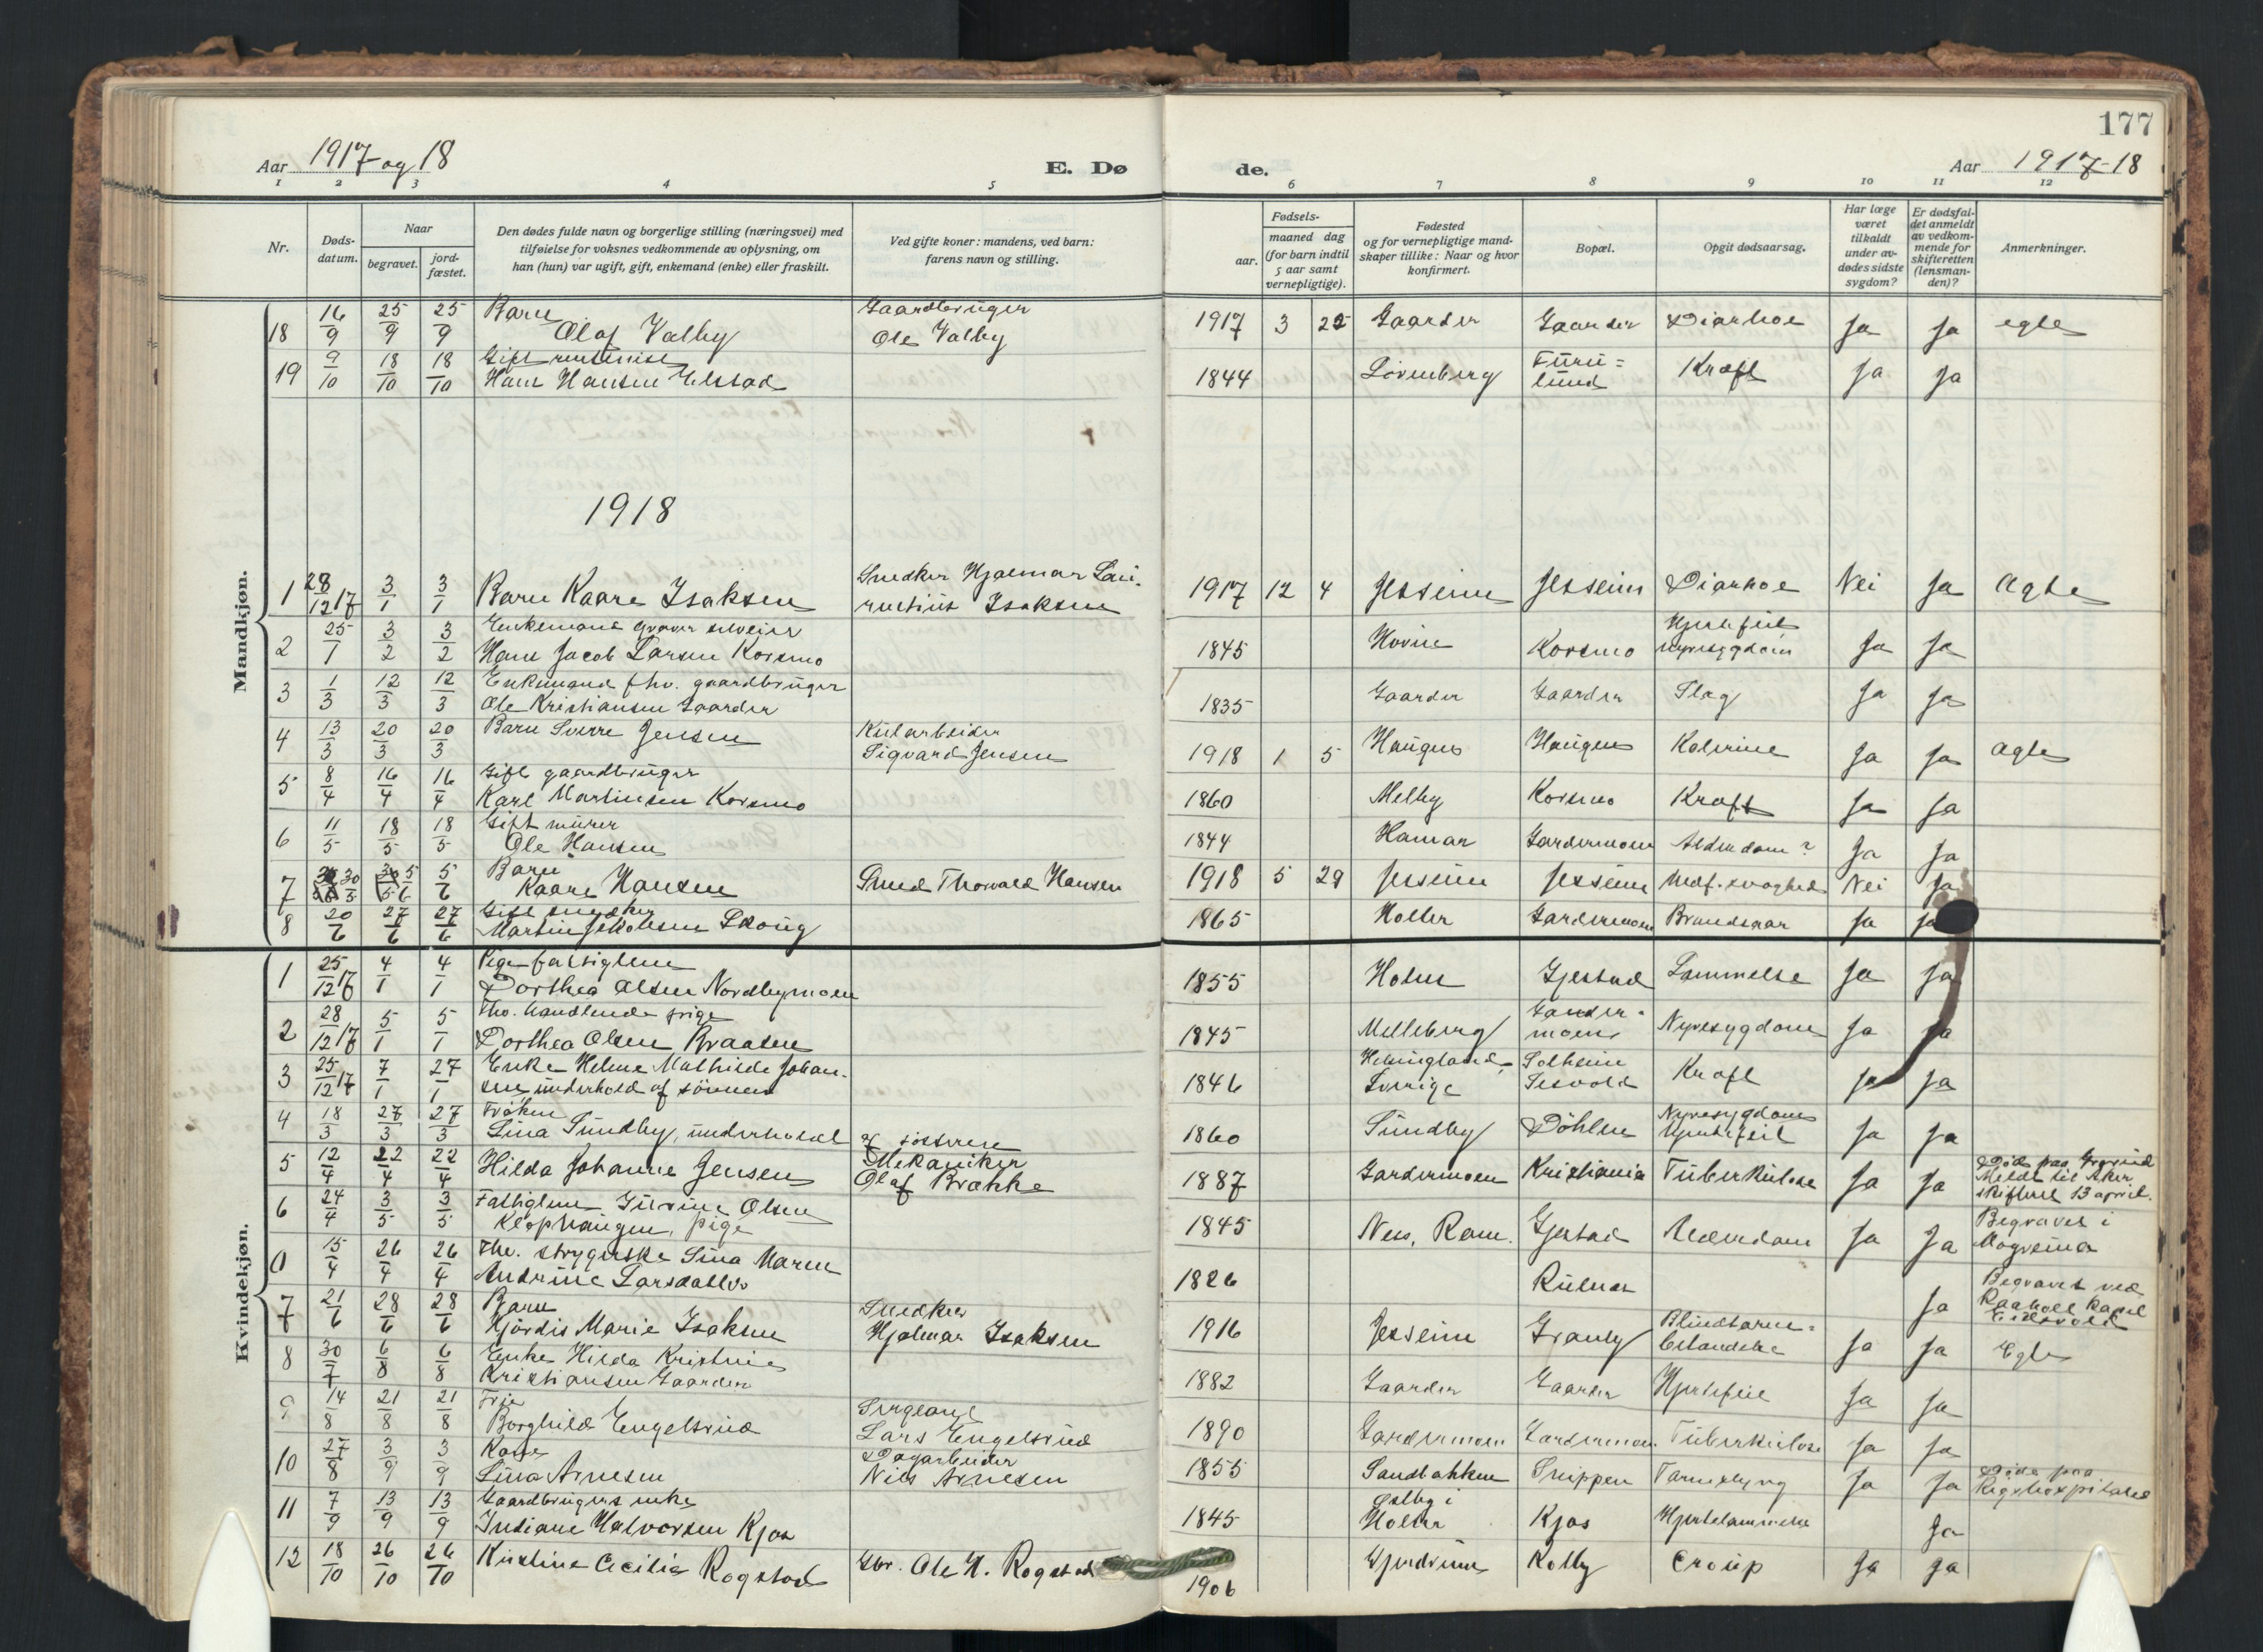 177
Aar 1917 og 18
E. Dø
de.
Aar 1917-18
1 2 3 4 5 6 7 8 9 10 11 12
Nr.
Døds-
datum.
Naar
begravet.
jord-
fæstet.
Den dødes fulde navn og borgerlige stilling (næringsvei) med
tilføielse for voksnes vedkommende av oplysning, om
han (hun) var ugift, gift, enkemand (enke) eller fraskilt.
Ved gifte koner: mandens, ved barn:
farens navn og stilling.
Fødsels-
aar.
maaned dag
(for barn indtil
5 aar samt
vernepligtige).
Fødested
og for vernepligtige mand-
skaper tillike: Naar og hvor
konfirmert.
Bopæl.
Opgit dødsaarsag.
Har læge
været
tilkaldt
under av-
dødes sidste
sygdom?
Er dødsfal-
det anmeldt
av vedkom-
mende for
skifteretten
(lensman-
den)?
Anmerkninger.
Mandkjøn.
18 16/9 25/9 25/9 Barn Olaf Valby Gaardbruger Ole Valby 1917 3 Gaarder Gaarder Diarhoe Ja Ja egte
19 9/10 18/10 18/10 Gift Hans Hansen Elstad 1844 Løvenberg Furu=lund Kræft Ja Ja
1918
1 28/12 17 3/1 3/1 Barn Kaare Isaksen Snedker Hjalmar Lau-rentius Isaksen 1917 12 4 Jesseim Jesseim Diarhoe Nei Ja Ægte
2 25/1 3/2 3/2 Enkemand Hans Jacob Larsen Korsmo 1845 Hovin Korsmo Hjertefeil Nyresygdom Ja Ja
3 1/3 12/3 12/3 Enkemand fhv. gaardbruger Ole Kristiansen Gaarder 1835 Gaarder Gaarder Slag Ja Ja
4 13/3 20/3 20/3 Barn Sverre Jensen Sigvard Jensen 1918 1 5 Haugen Haugen Kolerine Ja Ja Ægte
5 8/4 16/4 16/4 Gift gaardbruger Karl Martinsen Korsmo 1860 Melby Korsmo Kræft Ja Ja
6 11/5 18/5 18/5 Gift murer Ole Hansen 1844 Hamar Gardermoen Alderdom? Ja Ja
7 30/5 5/6 5/6 Barn Kaare Hansen Smed Thorvald Hansen 1918 5 29 Jesseim Jesseim Medf. svaghed Nei Ja
8 20/6 27/6 27/6 Gift snedker Martin Jakobsen Skoug 1865 Holter Gardermoen Brandsaar Ja Ja
Kvindekjøn.
1 25/12 17 4/1 4/1 Pige fattiglem Dorthea Olsen Nordbymoen 1855 Holm Gjestad Lammelse Ja Ja
2 28/12 17 5/1 5/1 Fhv. handlende pige Dorthea Olsen Braaten 1845 Melleberg Garder-moen Nyresygdom Ja Ja
3 25/12 17 7/1 27/1 Enke Helene Mathilde Johan-sen underhold af sønnen 1846 Helsingland, Sverige Solheim Kræft Ja Ja
4 18/3 27/3 27/3 Frøken Lina Sundby, underholdt af søstrene 1860 Sundby Döhlen Nyresygdom Hjertefeil Ja Ja
5 12/4 22/4 22/4 Hilda Johanne Jensen Mekaniker Olaf Brække 1887 Gardermoen Kristiania Tuberkulose Ja Ja Død paa Meldt til Aker skifteret 13 april.
6 24/4 3/5 3/5 Fattiglem Gurine Olsen Klophaugen, pige 1845 Nes, Rom. Gjestad Alderdom Ja Ja Begravet i Mogreina
0 15/4 26/4 26/4 Fhv. strygerske Lina Maren Andrine Larsdatter 1826 Ja Begravet ved Raaholt kapel Eidsvold
7 21/6 28/6 28/6 Barn Hjördis Marie Isaksen Snedker Hjalmar Isaksen 1916 Jesseim Granly Blindtarm=betændelse Ja Ja Egte
8 30/7 6/8 6/8 Enke Hilda Kristine Kristiansen Gaarder 1882 Gaarder Gaarder Hjertefeil Ja Ja
9 14/8 21/8 21/8 Frue Borghild Engelsrud Sergeant Lars Engelsrud 1890 Gardermoen Gardermoen Tuberkulose Ja Ja
10 27/8 3/9 3/9 Kone Lina Arnesen Dagarbeider Nils Arnesen 1855 Sandbakken Snippen Tarmslyng Ja Ja Døde paa Rigshospitalet
11 7/9 13/9 13/9 Gaardbrugers enke Indiane Halvorsen Kjos 1845 Østby i Holter Kjos Hjertelammelse Ja
12 18/10 26/10 26/10 Kristine Cecilie Rogstad Gbr. Ole H. Rogstad 1906 Gjerdrum Kolby Croup Ja Ja